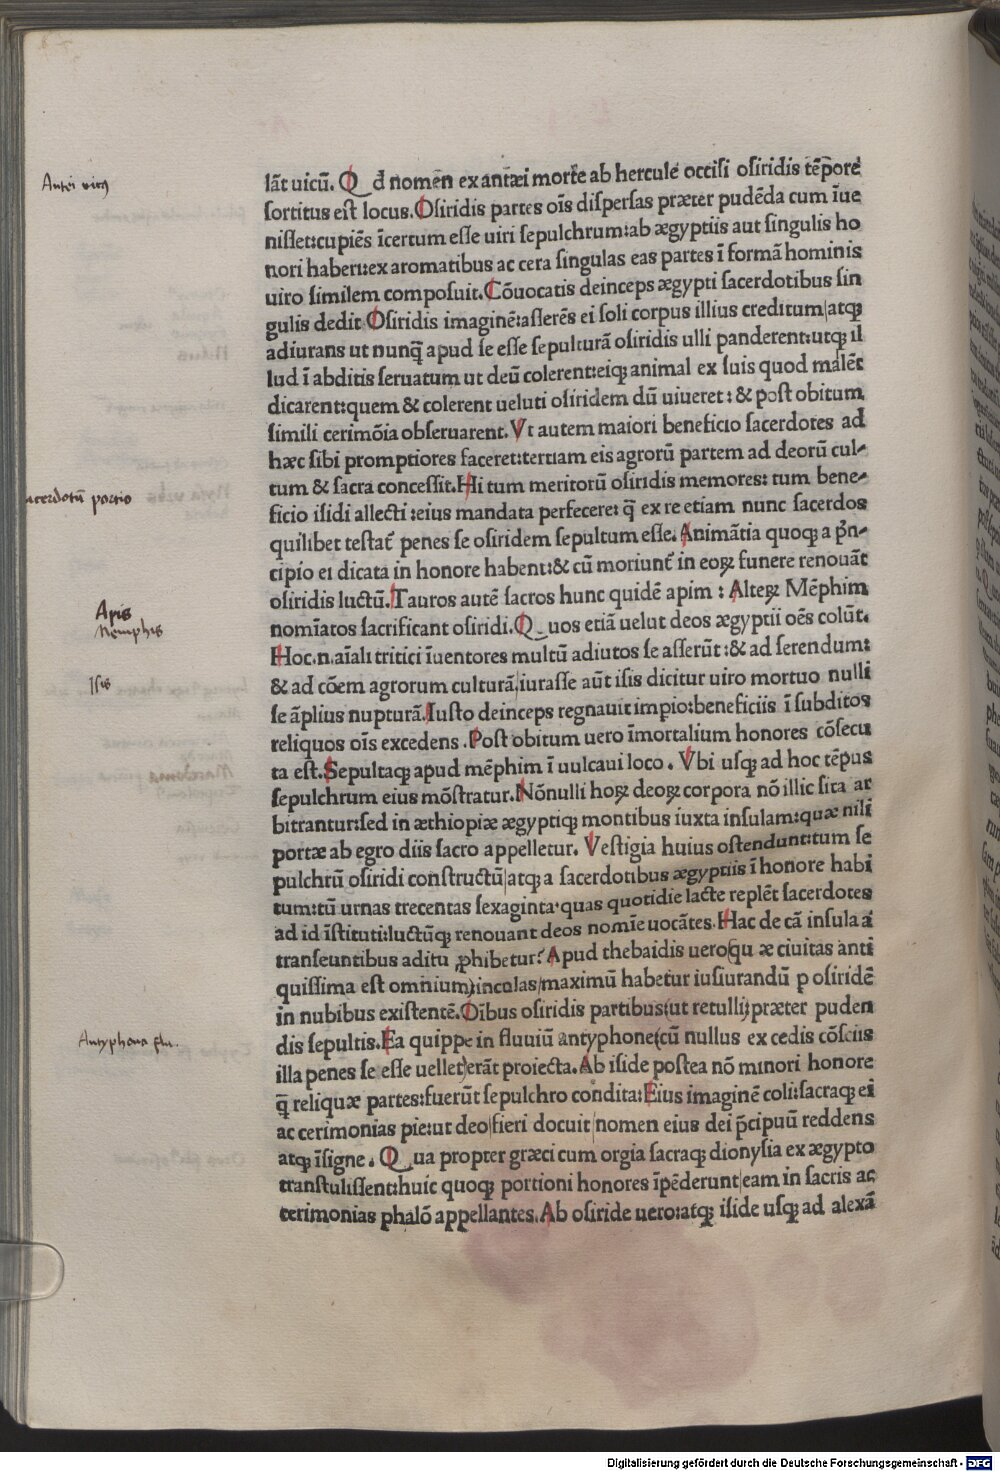 Antei vicus
lāt uicū. Qđ nomen ex antæi morte ab hercule occisi osiridis tēpore
sortitus est locus. Osiridis partes oīs dispersas præter pudēda cum īue
nisset:cupiēs īcertum esse uiri sepulchrum:ab ægyptiis aut singulis ho
nori haberi:ex aromatibus ac cera singulas eas partes ī formā hominis
uiro similem composuit. Cōuocatis deinceps ægypti sacerdotibus sin
gulis dedit Osiridis imaginē:asserēs ei soli corpus illius creditum atqʒ
adiurans ut nunq̄ apud se esse sepulturā osiridis ulli panderent:utqʒ il
lud ī abditis seruatum ut deū colerent:eiqʒ animal ex suis quod mallēt
dicarent:quem & colerent ueluti osiridem dū uiueret: & post obitum
simili cerimōia obseruarent. Vt autem maiori beneficio sacerdotes ad
hæc sibi promptiores faceret:tertiam eis agrorū partem ad deorū cul-
tum & sacra concessit. Hi tum meritorū osiridis memores: tum bene-
acerdotū portio
ficio isidi allecti:eius mandata perfecere: q̄ ex re etiam nunc sacerdos
quilibet testat̄ penes se osiridem sepultum esse. Animātia quoqʒ a p̄n-
cipio ei dicata in honore habent:& cū moriunt̄ in eoꝝ funere renouāt
osiridis luctū. Tauros autē sacros hunc quidē apim : Alteꝝ Mēphim
Apis
Nemphis
nomīatos sacrificant osiridi. Quos etiā uelut deos ægyptii oēs colūt.
Hoc.n.aīali tritici īuentores multū adiutos se asserūt:& ad serendum:
& ad cōem agrorum culturā, iurasse aūt isis dicitur uiro mortuo nulli
Isis
se āplius nupturā. Iusto deinceps regnauit impio:beneficiis ī subditos
reliquos oīs excedens . Post obitum uero īmortalium honores cōsecu
ta est. Sepultaqʒ apud mēphim ī uulcaui loco . Vbi usqʒ ad hoc tēpus
sepulchrum eius mōstratur. Nōnulli hoꝝ deoꝝ corpora nō illic sita ar
bitrantur:sed in æthiopiæ ægyptiqʒ montibus iuxta insulam:quæ nili
portæ ab egro diis sacro appelletur. Vestigia huius ostendunt:tum se
pulchrū osiridi constructū atqʒ a sacerdotibus ægyptiis ī honore habi
tum:tū urnas trecentas sexaginta·quas quotidie lacte replēt sacerdotes
ad id īstituti:luctūqʒ renouant deos nomīe uocātes. Hac de cā insula a
transeuntibus aditu ꝓhibetur: Apud thebaidis uero(qu æ ciuitas anti
quissima est omnium)incolas maximū habetur iusiurandū p osiridē
in nubibus existentē. Oībus osiridis partibus(ut retulli)præter puden
dis sepultis. Ea quippe in fluuiū antyphone(cū nullus ex cedis cōsciis
Antyphona flu.
illa penes se esse uellet)erāt proiecta. Ab iside postea nō minori honore
q̄ reliquæ partes:fuerūt sepulchro condita: Eius imaginē coli:sacraqʒ ei
ac cerimonias pie:ut deo fieri docuit nomen eius dei p̄cipuū reddens
atqʒ īsigne. Qua propter græci cum orgia sacraqʒ dionysia ex ægypto
transtulissent:huic quoqʒ portioni honores īpēderunt eam in sacris ac
cerimonias phalō appellantes. Ab osiride uero:atqʒ iside usqʒ ad alexā
Digitalisierung gefördert durch die Deutsche Forschungsgemeinschaft - DFG